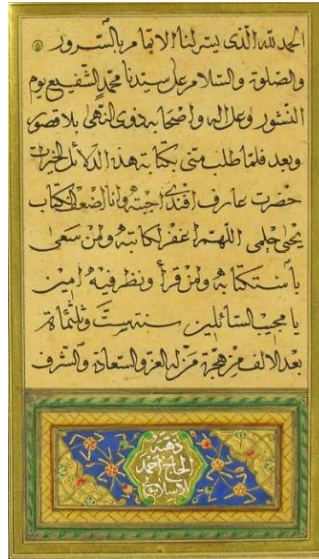 الحمد لله الذي يسر لنا الاتمام بالسرور
والصلوة والسلام على سيدنا محمد الشفيع يوم
النشور وعلى اله واصحابه ذوى النهى بلا قصور
وبعد فلما طلب منى بكتابة هذه الدلائل الخيرات
حضرت عارف افندى اجبته وانا اضعف الكتاب
يحيى حلمى اللهم اغفر لكاتبه ولمن سعى
باستكتابه ولمن قرأ ونظر فيه امين
يا مجيب السائلين سنه ست وثلثمائة
بعد الالف من هجرة من له العز والسعادة والشرف
ذهبه
الحاج احمد